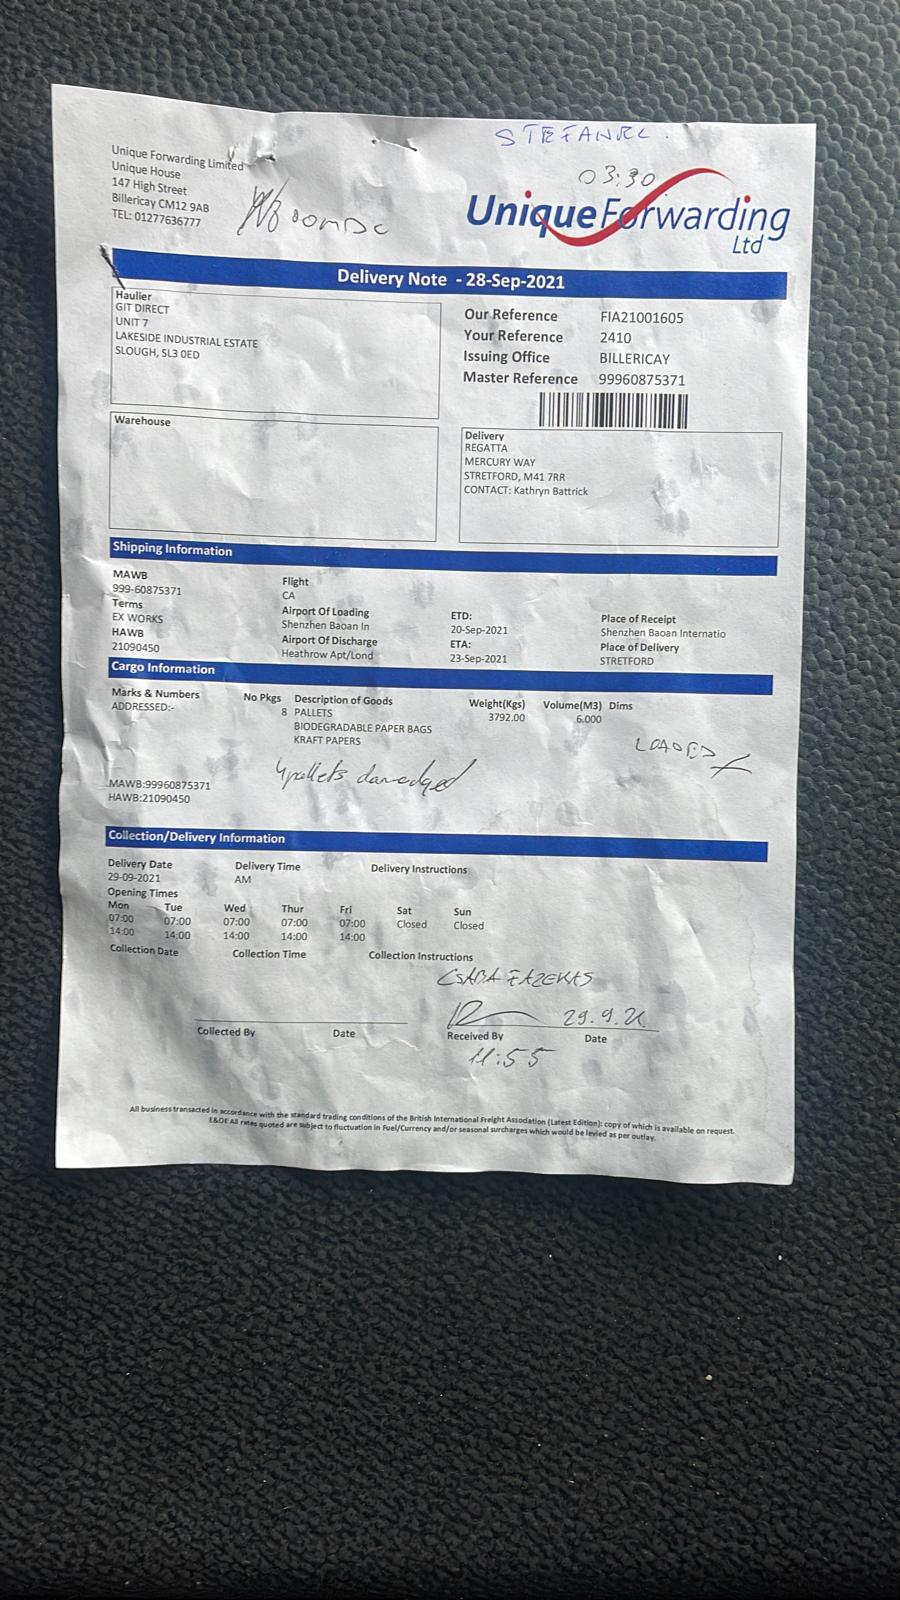 STEFANEL.
03:30
Unique Forwarding Limited
Unique House
147 High Street
Billericay CM12 9AB
TEL: 01277636777
UniqueForwarding
Ltd
Delivery Note - 28-Sep-2021
Haulier
GIT DIRECT
UNIT 7
LAKESIDE INDUSTRIAL ESTATE
SLOUGH, SL3 0ED
Our Reference FIA21001605
Your Reference 2410
Issuing Office BILLERICAY
Master Reference 99960875371
Warehouse
Delivery
REGATTA
MERCURY WAY
STRETFORD, M41 7RR
CONTACT: Kathryn Battrick
Shipping Information
MAWB
999-60875371
Terms
EX WORKS
HAWB
21090450
Flight
CA
Airport Of Loading
Shenzhen Baoan In
Airport Of Discharge
Heathrow Apt/Lond
ETD:
20-Sep-2021
ETA:
23-Sep-2021
Place of Receipt
Shenzhen Baoan Internatio
Place of Delivery
STRETFORD
Cargo Information
Marks & Numbers No Pkgs Description of Goods Weight(Kgs) Volume(M3) Dims
ADDRESSED:- 8 PALLETS 3792.00 6.000
BIODEGRADABLE PAPER BAGS
KRAFT PAPERS
LOADED
4pallets damedged
MAWB:99960875371
HAWB:21090450
Collection/Delivery Information
Delivery Date Delivery Time Delivery Instructions
29-09-2021 AM
Opening Times
Mon Tue Wed Thur Fri Sat Sun
07:00 07:00 07:00 07:00 07:00 Closed Closed
14:00 14:00 14:00 14:00 14:00
Collection Date Collection Time Collection Instructions
CSABA FAZEKAS
29.9.21
Collected By Date Received By Date
11:55
All business transacted in accordance with the standard trading conditions of the British International Freight Association (Latest Edition): copy of which is available on request.
E&OE All rates quoted are subject to fluctuation in Fuel/Currency and/or seasonal surcharges which would be levied as per outlay.